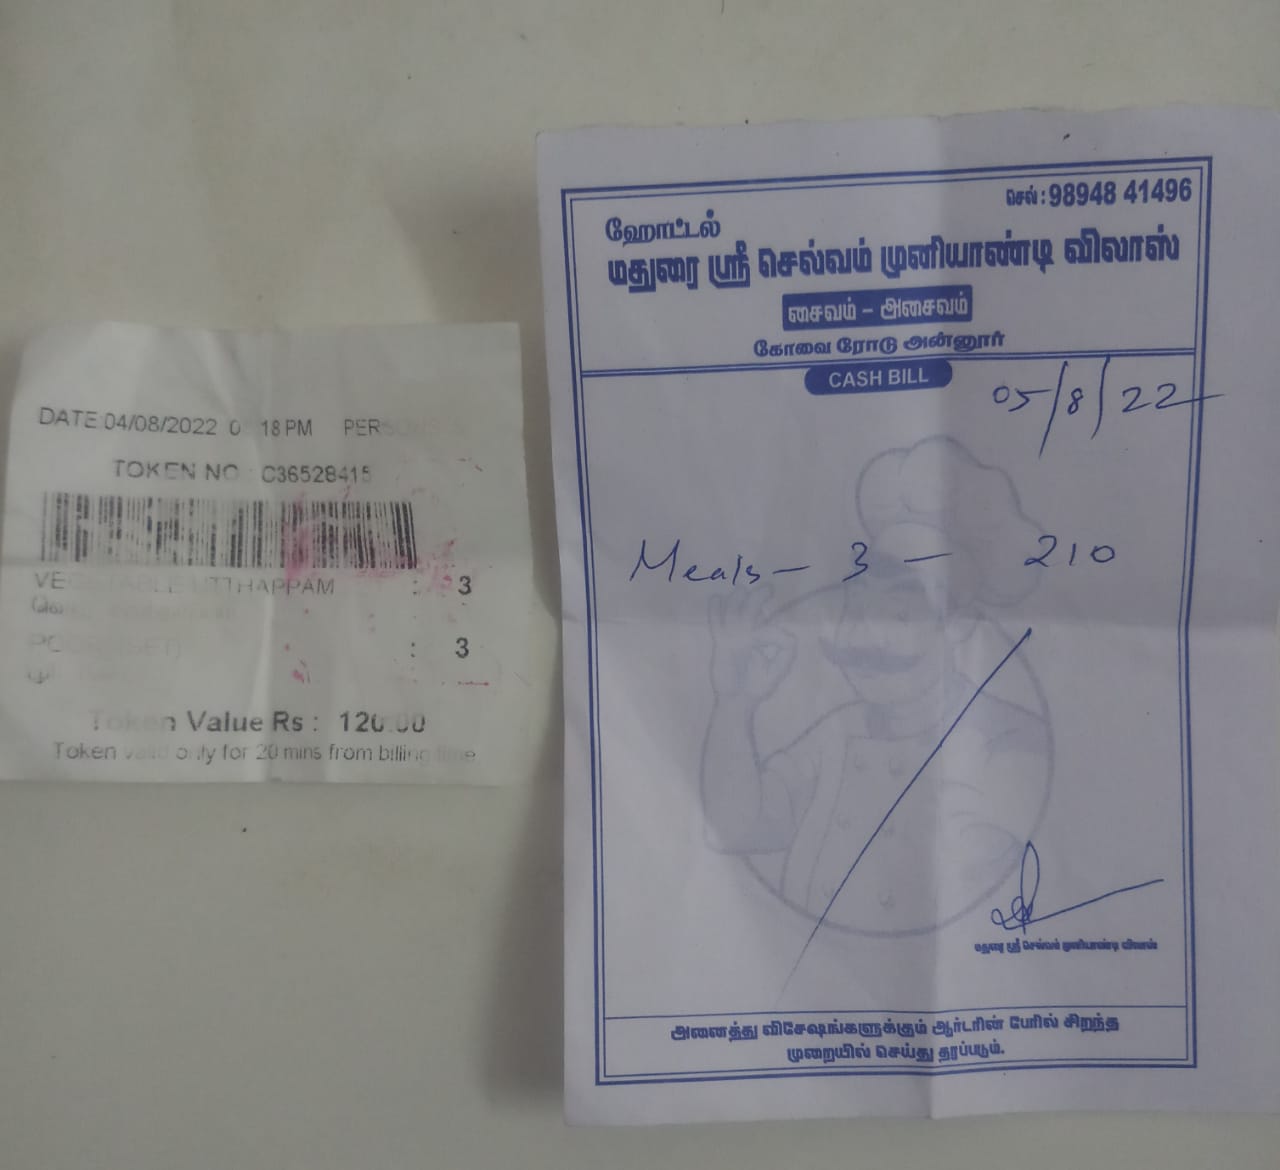 DATE:04/08/2022 0 18PM PERSONS
TOKEN NO : C36528415
VEGETABLE UTTHAPPAM : 3
POORI(SET) : 3
Token Value Rs : 120.00
Token valid only for 20 mins from billing time
செல் : 98948 41496
ஹோட்டல்
மதுரை ஸ்ரீ செல்வம் முனியாண்டி விலாஸ்
சைவம் - அசைவம்
கோவை ரோடு அன்னூர்
CASH BILL
05/8/22
Meals - 3 - 210
மதுரை ஸ்ரீ செல்வம் முனியாண்டி விலாஸ்
அனைத்து விசேஷங்களுக்கும் ஆர்டரின் பேரில் சிறந்த
முறையில் செய்து தரப்படும்.